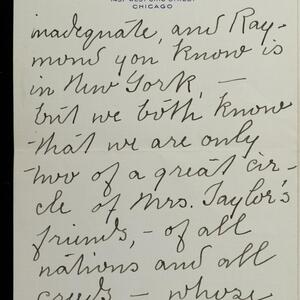 CHICAGO
inadequate, and Ray-
mond you know is
in New York, —
but we both know
that we are only
two of a great cir-
cle of Mrs. Taylor's
friends, — of all
nations and all
creeds — whose